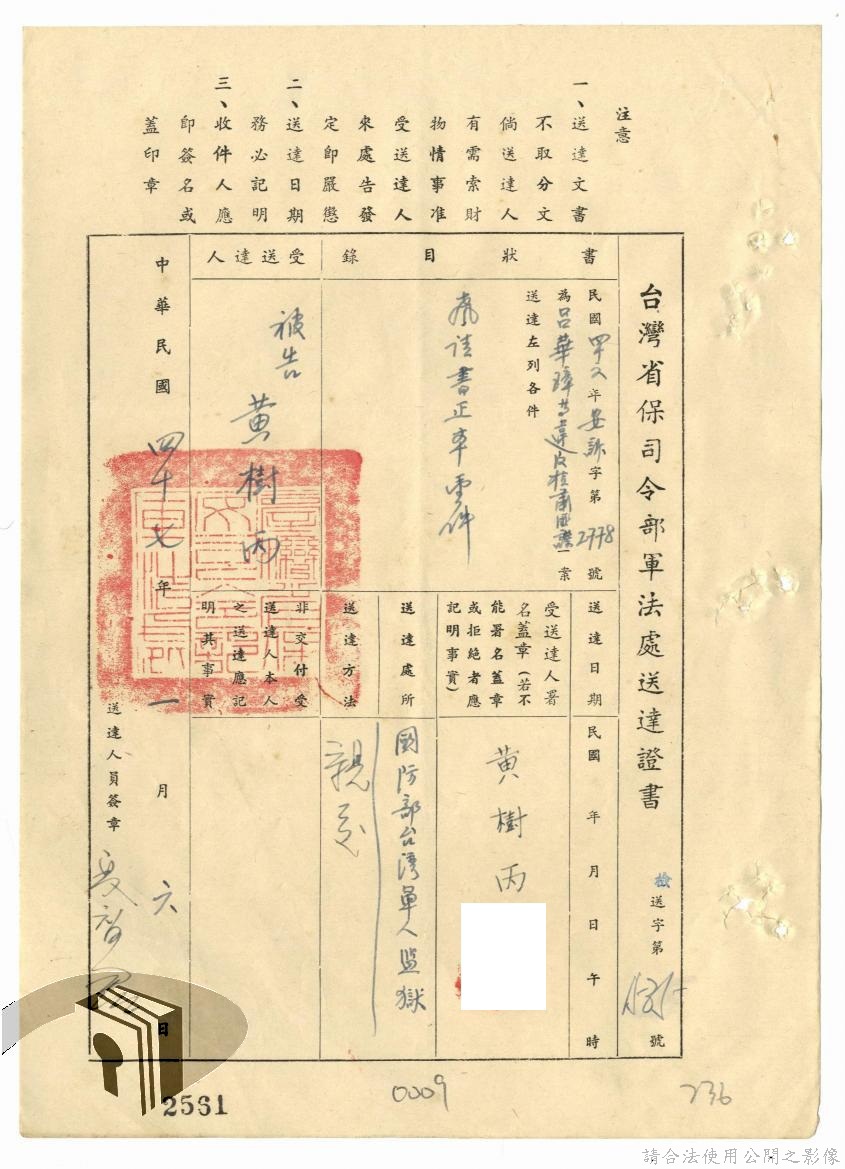 注意
一、送達文書
不取分文
倘送達人
有需索財
物情事准
受送達人
來處告發
定即嚴懲
二、送達日期
務必記明
三、收件人應
即簽名或
蓋印章
台灣省保司令部軍法處送達證書
檢送字第 號
書狀目錄
民國四十六年安訴字第2778號
為呂華璋等違反檢肅匪諜一案
送達左列各件
聲請書正本壹件
受送達人
被告 黃樹丙
送達日期
民國 年 月 日 午 時
受送達人署
名蓋章(若不
能署名蓋章
或拒絕者應
記明事實)
黃樹丙
送達處所
國防部台灣軍人監獄
送達方法
親交
非交付受
送達人本人
之送達應記
明其事實
中華民國四十七年一月六日
送達人員簽章
2561
0009
236
請合法使用公開之影像